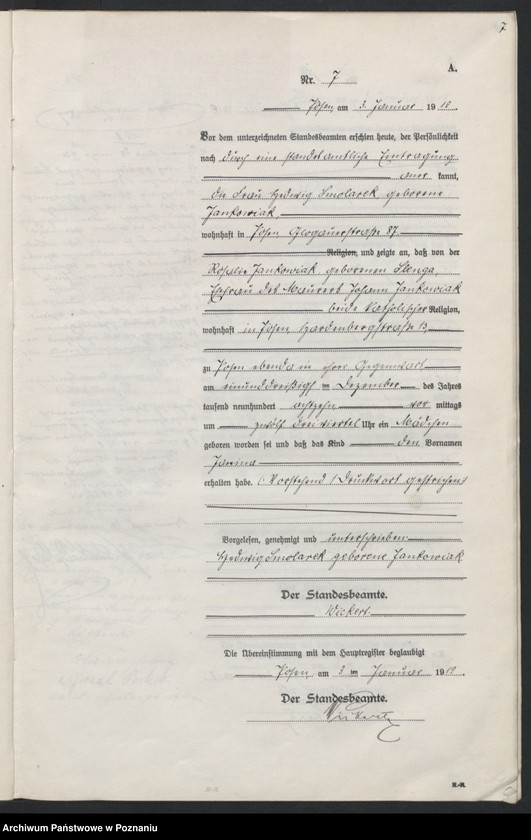 7
A.
Nr. 7
Posen, am 3. Januar 1919.
Vor dem unterzeichneten Standesbeamten erschien heute, der Persönlichkeit
nach durch eine standesamtliche Eintragung
aner kannt,
die Frau Hedwig Smolarek geborene
Jankowiak
wohnhaft in Posen Glogauerstraße 87.
Religion, und zeigte an, daß von der
Rosalie Jankowiak geborenen Slenga,
Ehefrau des Maurers Johann Jankowiak
beide katholischer Religion,
wohnhaft in Posen Hardenbergstraße 13
zu Posen ebenda in ihrer Gegenwart
am einunddreißigsten Dezember des Jahres
tausend neunhundert achtzehn vor mittags
um zwölf dreiviertel Uhr ein Mädchen
geboren worden sei und daß das Kind den Vornamen
Janina
erhalten habe. (Vorstehend 1 Druckwort gestrichen)
Vorgelesen, genehmigt und unterschrieben
Hedwig Smolarek geborene Jankowiak
Der Standesbeamte.
Wickert
Die Übereinstimmung mit dem Hauptregister beglaubigt
Posen, am 3 ten Januar 1919.
Der Standesbeamte.
Wickert
Archiwum Państwowe w Poznaniu